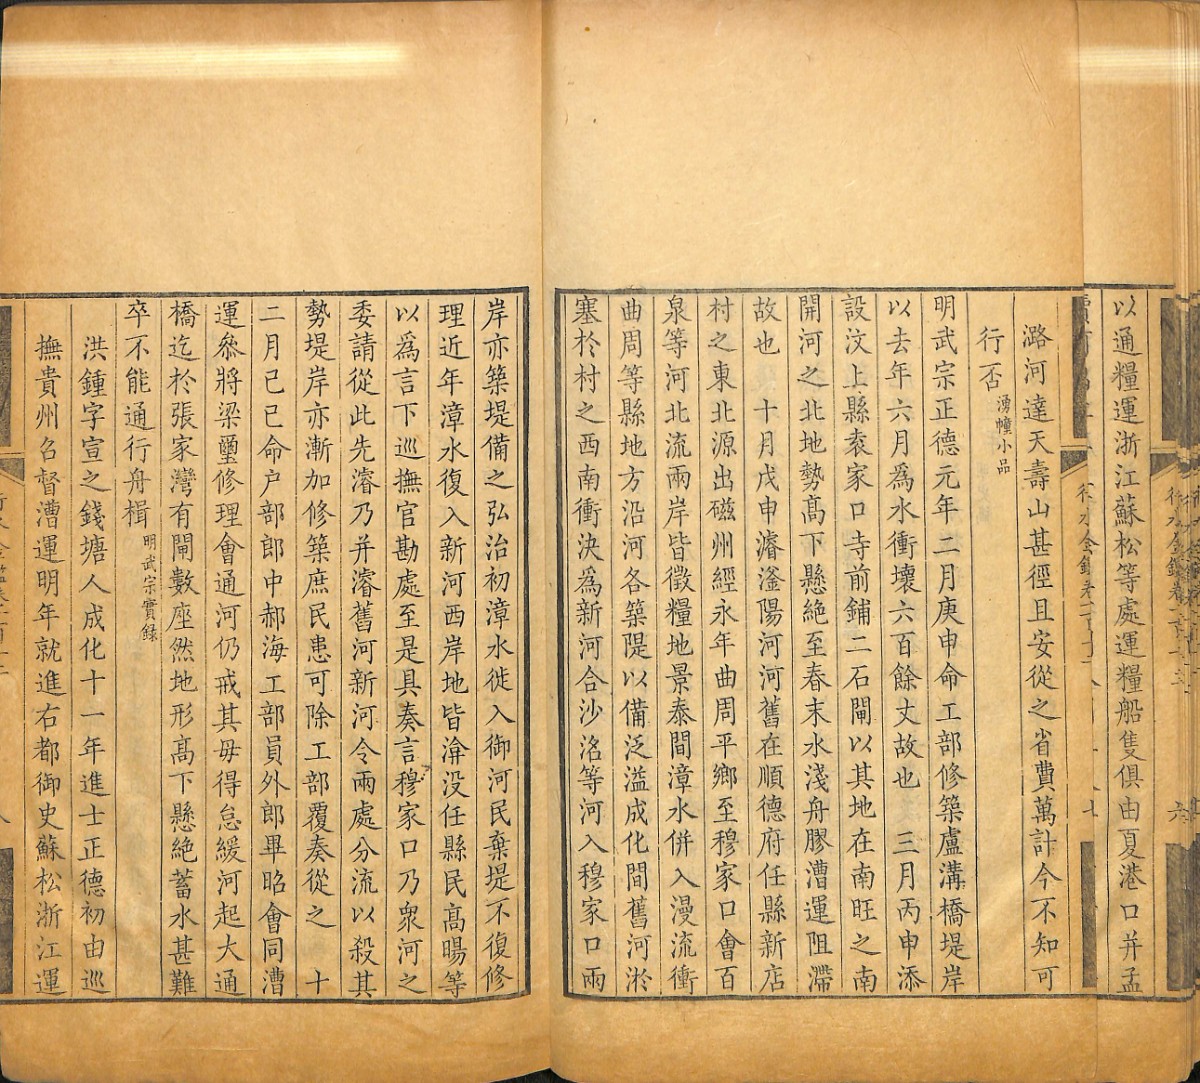 以通糧運浙江蘇松等處運糧船隻俱由夏港口并孟
潞河達天壽山甚徑且安從之省費萬計今不知可
行否湧幢小品
明武宗正德元年二月庚申命工部修築盧溝橋堤岸
以去年六月為水衝壞六百餘丈故也 三月丙申添
設汶上縣袁家口寺前鋪二石閘以其地在南旺之南
開河之北地勢髙下懸絶至春末水淺舟膠漕運阻滯
故也 十月戊申濬滏陽河河舊在順德府任縣新店
村之東北源出磁州經永年曲周平鄉至穆家口會百
泉等河北流兩岸皆徵糧地景泰間漳水併入漫流衝
曲周等縣地方沿河各築隄以備泛溢成化間舊河淤
塞於村之西南衝決為新河合沙洺等河入穆家口兩
岸亦築堤備之弘治初漳水徙入御河民棄堤不復修
理近年漳水復入新河西岸地皆渰没任縣民髙暘等
以為言下巡撫官勘處至是具奏言穆家口乃衆河之
委請從此先濬乃并濬舊河新河令兩處分流以殺其
勢堤岸亦漸加修築庶民患可除工部覆奏從之 十
二月己巳命户部郎中郝海工部員外郎畢昭會同漕
運叅將梁璽修理會通河仍戒其毋得怠緩河起大通
橋迄於張家灣有閘數座然地形髙下懸絶蓄水甚難
卒不能通行舟楫明武宗實録
洪鍾字宣之錢塘人成化十一年進士正德初由巡
撫貴州召督漕運明年就進右都御史蘇松浙江運